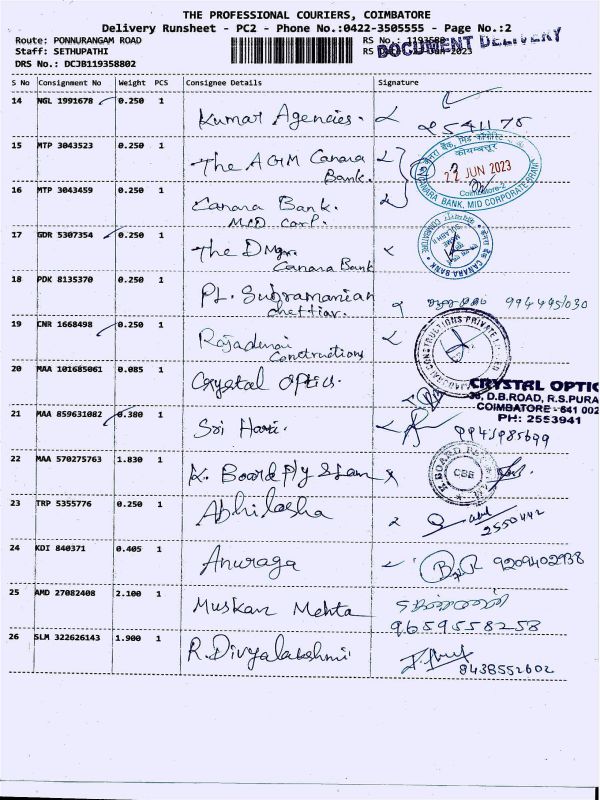 THE PROFESSIONAL COURIERS, COIMBATORE
Delivery Runsheet - PC2 - Phone No.:0422-3505555 - Page No.:2
Route: PONNURANGAM ROAD
Staff: SETHUPATHI
DRS No.: DCJB119358802
RS No.:
RS
DOCUMENT DELIVERY
S No Consignment No Weight PCS Consignee Details Signature
14 NGL 1991678 0.250 1 Kumar Agencies.
2541178
15 MTP 3043523 0.250 1 The AGM Canara Bank.
22 JUN 2023
Coimbatore-2
CANARA BANK, MID CORPORATE BRANCH
16 MTP 3043459 0.250 1 Canara Bank.
MID Corp.
17 GDR 5307354 0.250 1 The DMgr.
Canara Bank
CANARA BANK
COIMBATORE
18 PDK 8135370 0.250 1 PL. Subramanian
chettiar.
19 CNR 1668498 0.250 1 Rajadurai
Constructions
CONSTRUCTIONS PRIVATE LIMITED
20 MAA 101685061 0.085 1 Crystal Optics.
CRYSTAL OPTIC
36, D.B.ROAD, R.S.PURA
COIMBATORE - 641 002
PH: 2553941
21 MAA 859631082 0.380 1 Sri Hari.
22 MAA 570275763 1.830 1 K. Board Ply & Lam
K. BOARD
CBB
23 TRP 5355776 0.250 1 Abhilasha
2550442
24 KDI 840371 0.405 1 Anuraga
9209402938
25 AMD 27082408 2.100 1 Muskan Mehta
9659558258
26 SLM 322626143 1.900 1 R. Divyalakshmi
8438552602